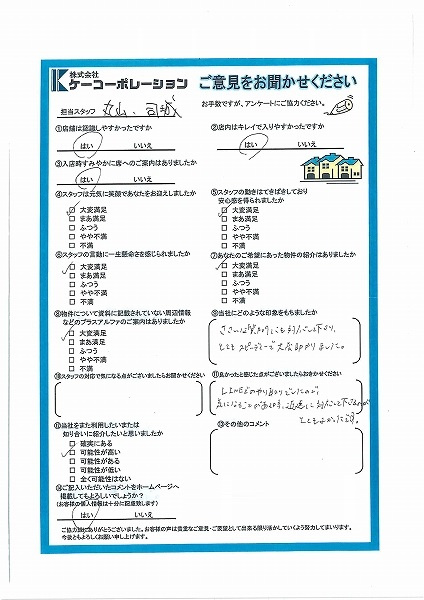 株式会社
ケーコーポレーション
ご意見をお聞かせください
担当スタッフ 丸山、司城
お手数ですが、アンケートにご協力ください。
①店舗は認識しやすかったですか
はい いいえ
②店内はキレイで入りやすかったですか
はい いいえ
③入店時すみやかに席へのご案内はありましたか
はい いいえ
④スタッフは元気に笑顔であなたをお迎えしましたか
大変満足
まあ満足
ふつう
やや不満
不満
⑤スタッフの動きはてきぱきしており
安心感を得られましたか
大変満足
まあ満足
ふつう
やや不満
不満
⑥スタッフの言動に一生懸命さを感じられましたか
大変満足
まあ満足
ふつう
やや不満
不満
⑦あなたのご希望にあった物件の紹介はありましたか
大変満足
まあ満足
ふつう
やや不満
不満
⑧物件について資料に記載されていない周辺情報
などのプラスアルファのご案内はありましたか
大変満足
まあ満足
ふつう
やや不満
不満
⑨当社にどのような印象をもちましたか
対応して下り、
とてもスピーディーで大変助かりました。
⑩スタッフの対応で気になる点がございましたらお聞かせください
⑪良かったと感じた点がございましたらお聞かせください
LINEでのやりとりでしたので、
気になることがあっても、迅速に対応して下さるのが
とてもよかったです。
⑫当社をまた利用したいまたは
知り合いに紹介したいと思いましたか
確実にある
可能性が高い
可能性がある
可能性が低い
全く可能性はない
⑬その他のコメント
⑭ご記入いただいたコメントをホームページへ
掲載してもよろしいでしょうか？
(お客様の個人情報は十分に配慮致します)
はい いいえ
ご協力誠にありがとうございました。お客様の声は貴重なご意見・ご要望として出来る限り活かしていくよう努力してまいります。
今後ともよろしくお願い申し上げます。